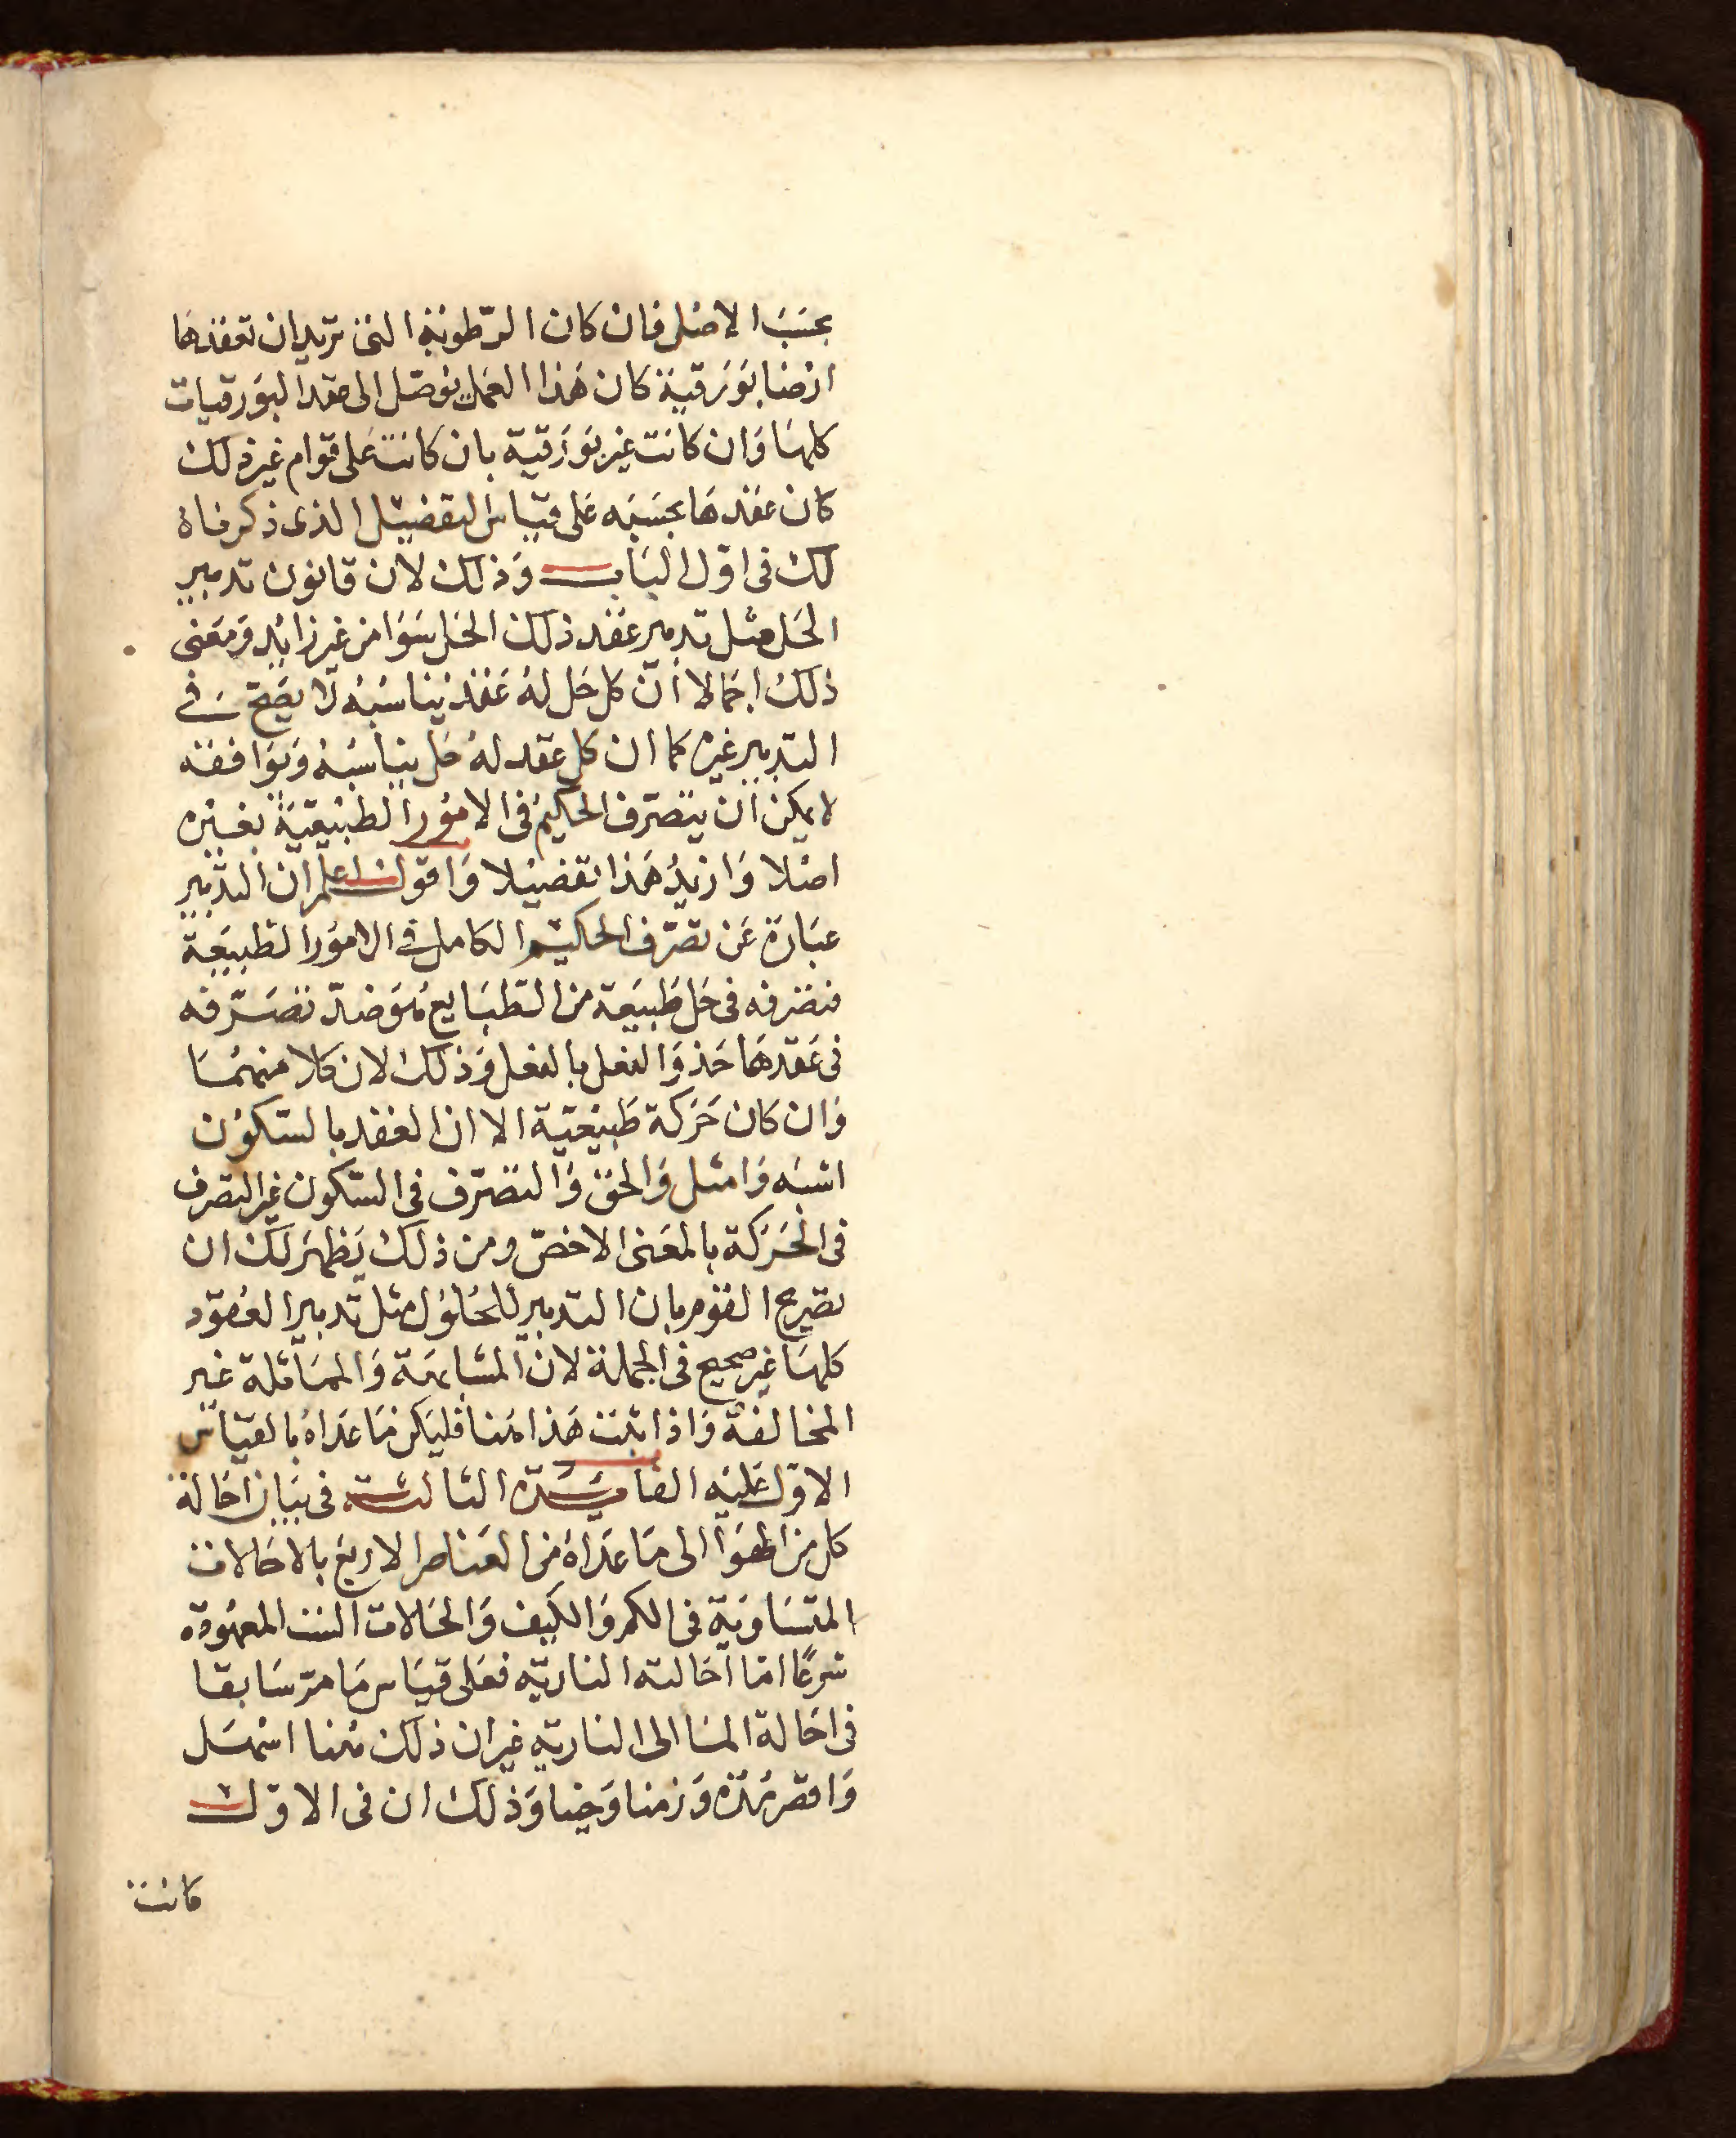 بحسب الاصل فان كان الرطوبة التى تريد ان تعقدها
ارضا بورقية كان هذا العمل يوصل الى عقد البورقيات
كلها وان كانت غير بورقية بان كانت على قوام غير ذلك
كان عقدها بحسبه على قياس التفضيل الذى ذكرناه
لك فى اول الباب وذلك لان قانون تدبير
الحل مثل تدبير عقد ذلك الحل سوا من غير زائد ومعنى
ذلك اجمالا أن كل حل له عقد يناسبه لا يصح فى
التدبير غيره كما ان كل عقد له حل يناسبه ويوافقه
لا يمكن ان يتصرف الحكيم فى الامور الطبيعية بغيره
اصلا وازيد هذا تفضيلا واقول اعلم ان التدبير
عبارة عن تصرف الحكيم الكامل فى الامور الطبيعة
فتصرفه فى حل طبيعة من الطبايع تصرفه
فى عقدها حذو النعل بالنعل وذلك لان كلا منهما
وان كان حركة طبيعية الا ان العقد بالسكون
اشبه وامثل والحق والتصرف فى السكون غير التصرف
فى الحركة بالمعنى الاخص ومن ذلك يظهر لك ان
تصريح القوم بان التدبير للحلول مثل تدبير العقود
كلها غير صحيح فى الجملة لان المشابهة والمماثلة غير
المخالفة واذا ثبت هذا هنا فليكن ما عداه بالقياس
الاول عليه الفايدة الثالثة فى بيان احالة
كل من الهوا الى ما عداه من العناصر الاربع بالاحالات
المتساوية فى الكم والكيف والحالات الست المعهودة
شرعا اما احالته النارية فعلى قياس ما مر سابقا
فى احالة الما الى النارية غير ان ذلك هنا اسهل
واقصر مدة وزمنا وحينا وذلك ان فى الاول
كانت